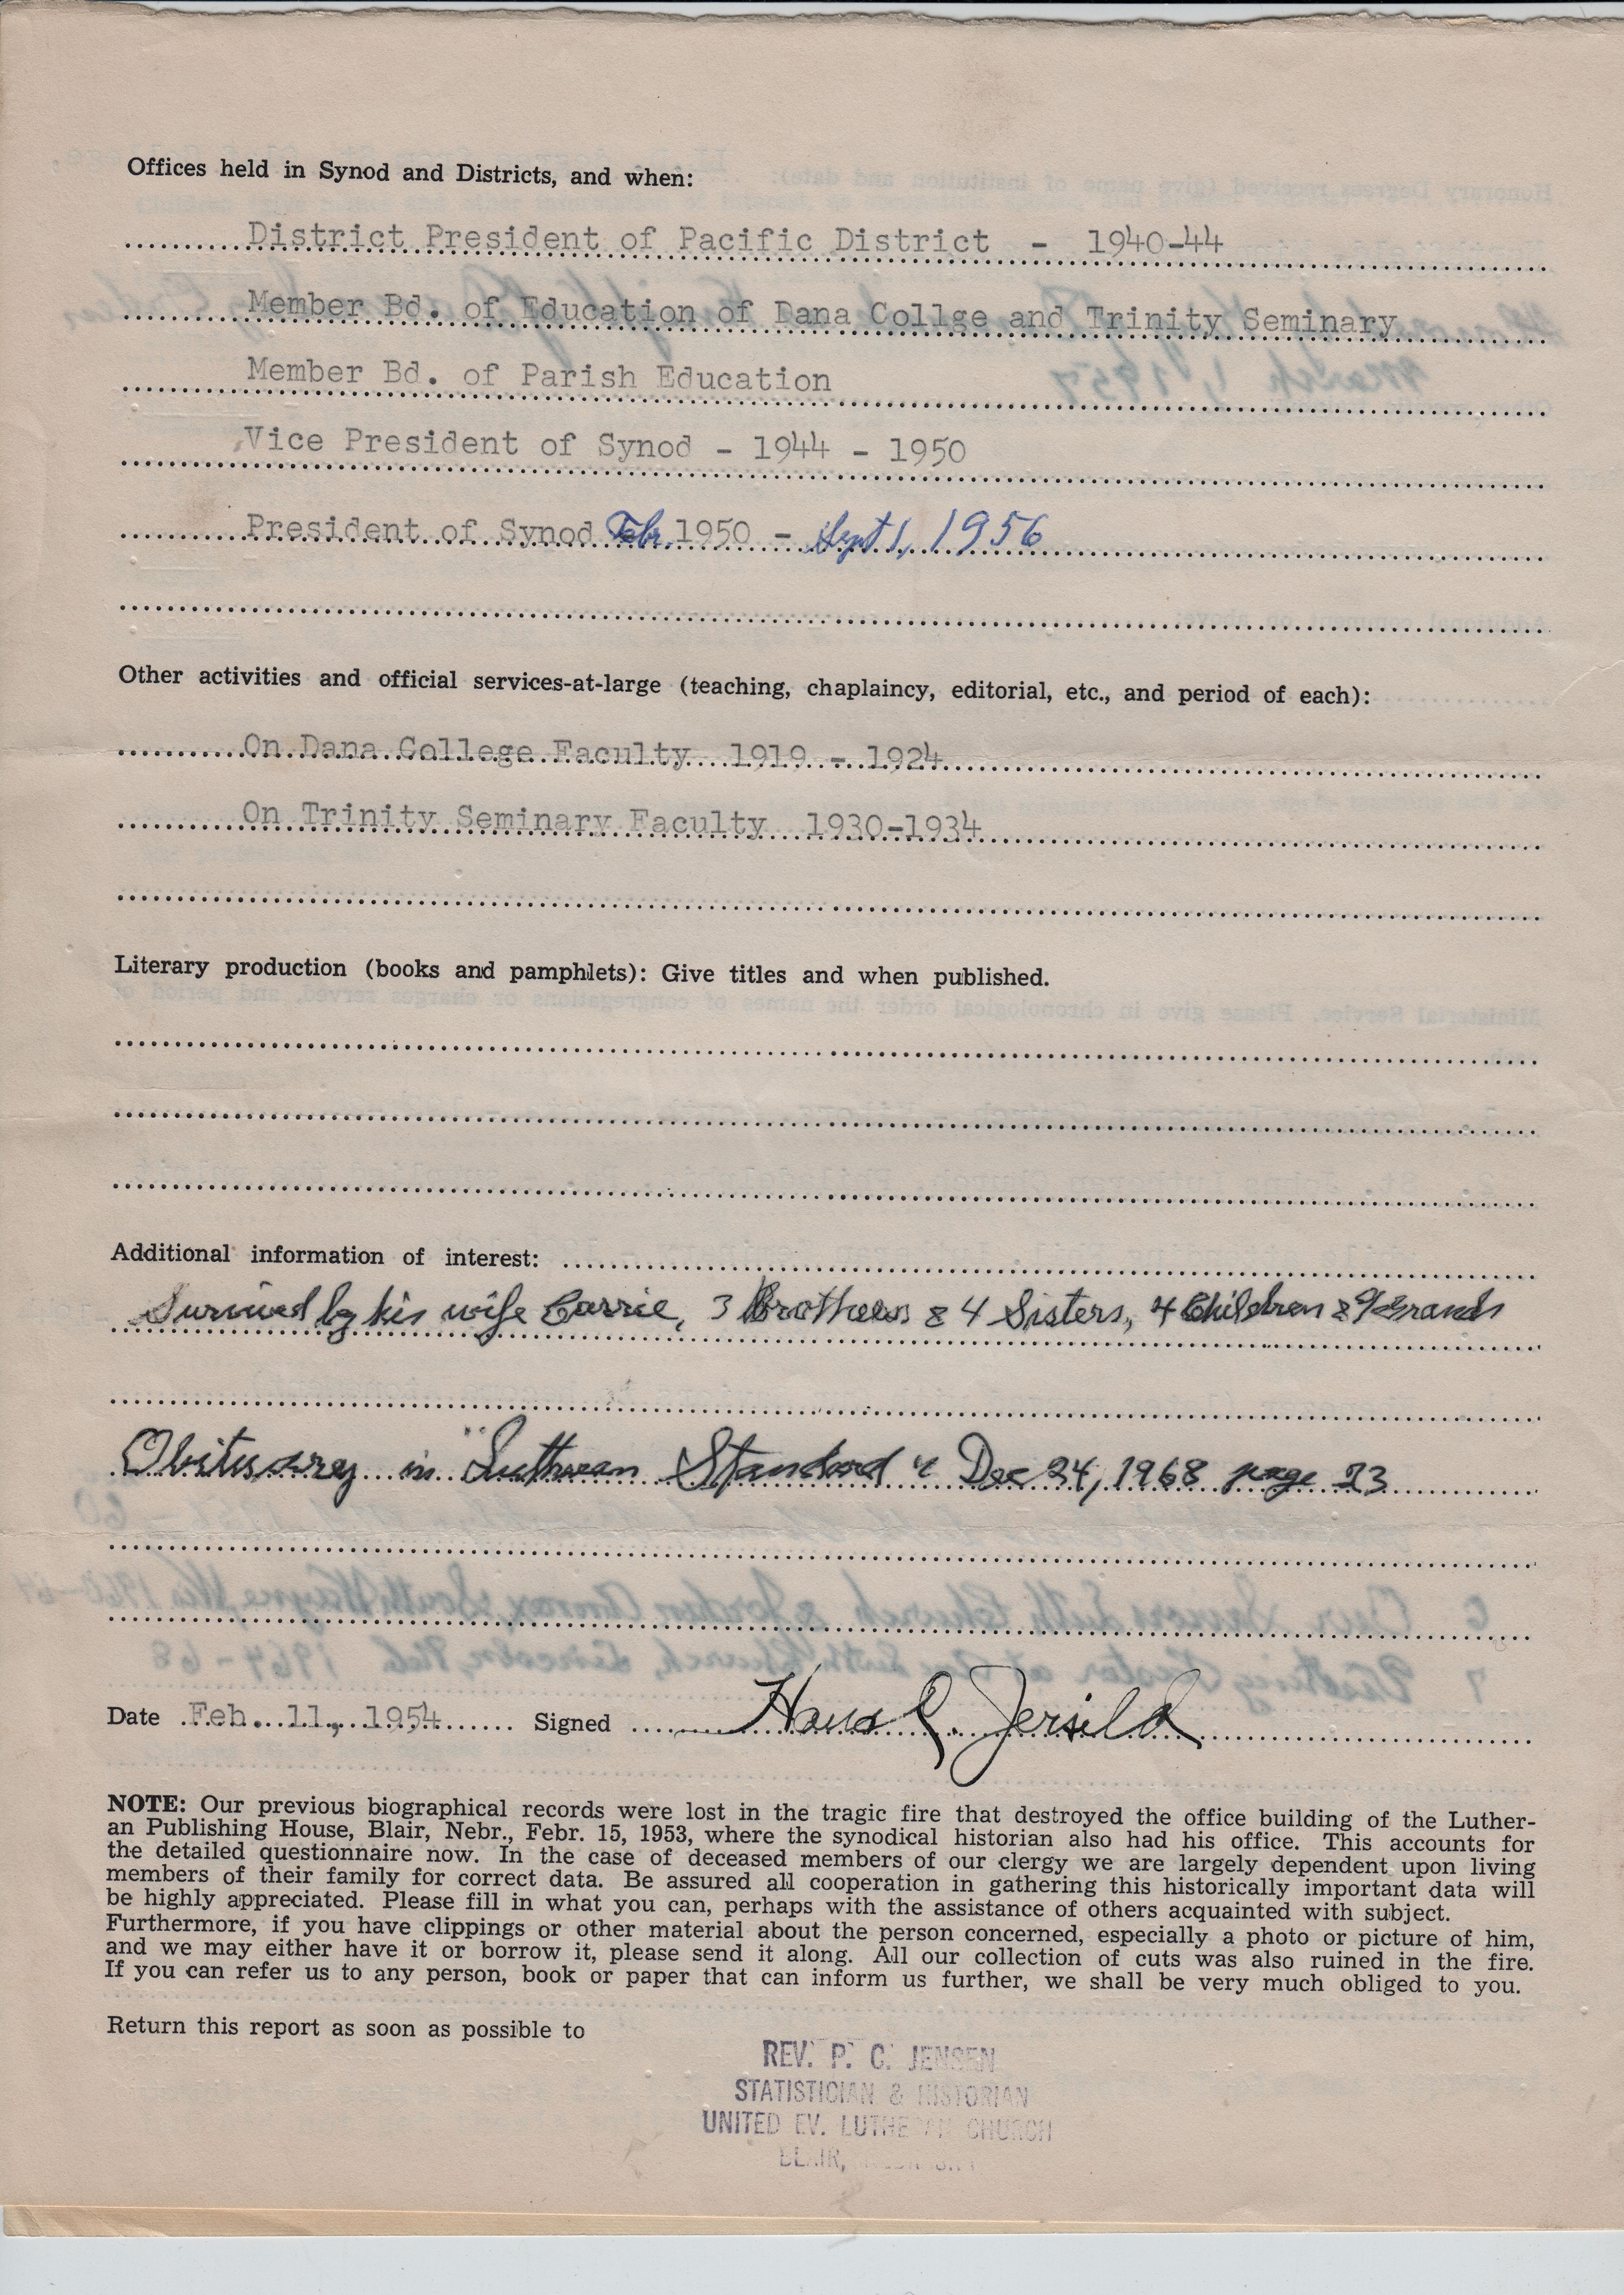 Offices held in Synod and Districts, and when:
District President of Pacific District - 1940-44
Member Bd. of Education of Dana Collge and Trinity Seminary
Member Bd. of Parish Education
Vice President of Synod - 1944 - 1950
President of Synod Febr. 1950 - Sept 1, 1956
Other activities and official services-at-large (teaching, chaplaincy, editorial, etc., and period of each):
On Dana College Faculty 1919 - 1924
On Trinity Seminary Faculty 1930-1934
Literary production (books and pamphlets): Give titles and when published.
Additional information of interest:
Survived by his wife Carrie, 3 Brothers & 4 Sisters, 4 Children & 9 Grands
Obituarey in "Lutheran Standard" Dec 24, 1968 page 23
Date Feb. 11, 1954 Signed Hans C. Jersild
NOTE: Our previous biographical records were lost in the tragic fire that destroyed the office building of the Luther-
an Publishing House, Blair, Nebr., Febr. 15, 1953, where the synodical historian also had his office. This accounts for
the detailed questionnaire now. In the case of deceased members of our clergy we are largely dependent upon living
members of their family for correct data. Be assured all cooperation in gathering this historically important data will
be highly appreciated. Please fill in what you can, perhaps with the assistance of others acquainted with subject.
Furthermore, if you have clippings or other material about the person concerned, especially a photo or picture of him,
and we may either have it or borrow it, please send it along. All our collection of cuts was also ruined in the fire.
If you can refer us to any person, book or paper that can inform us further, we shall be very much obliged to you.
Return this report as soon as possible to
REV. P. C. JENSEN
STATISTICIAN & HISTORIAN
UNITED EV. LUTHERAN CHURCH
BLAIR,